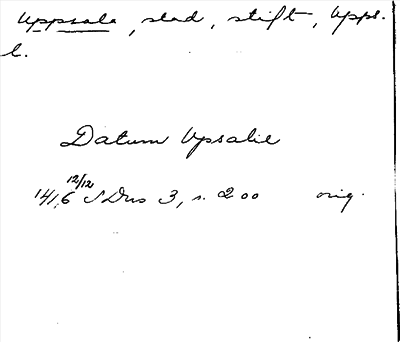 Uppsala, stad, stift, Upps.
l.
Datum Upsalie
12/12
1416 SDns 3, s. 200 orig.